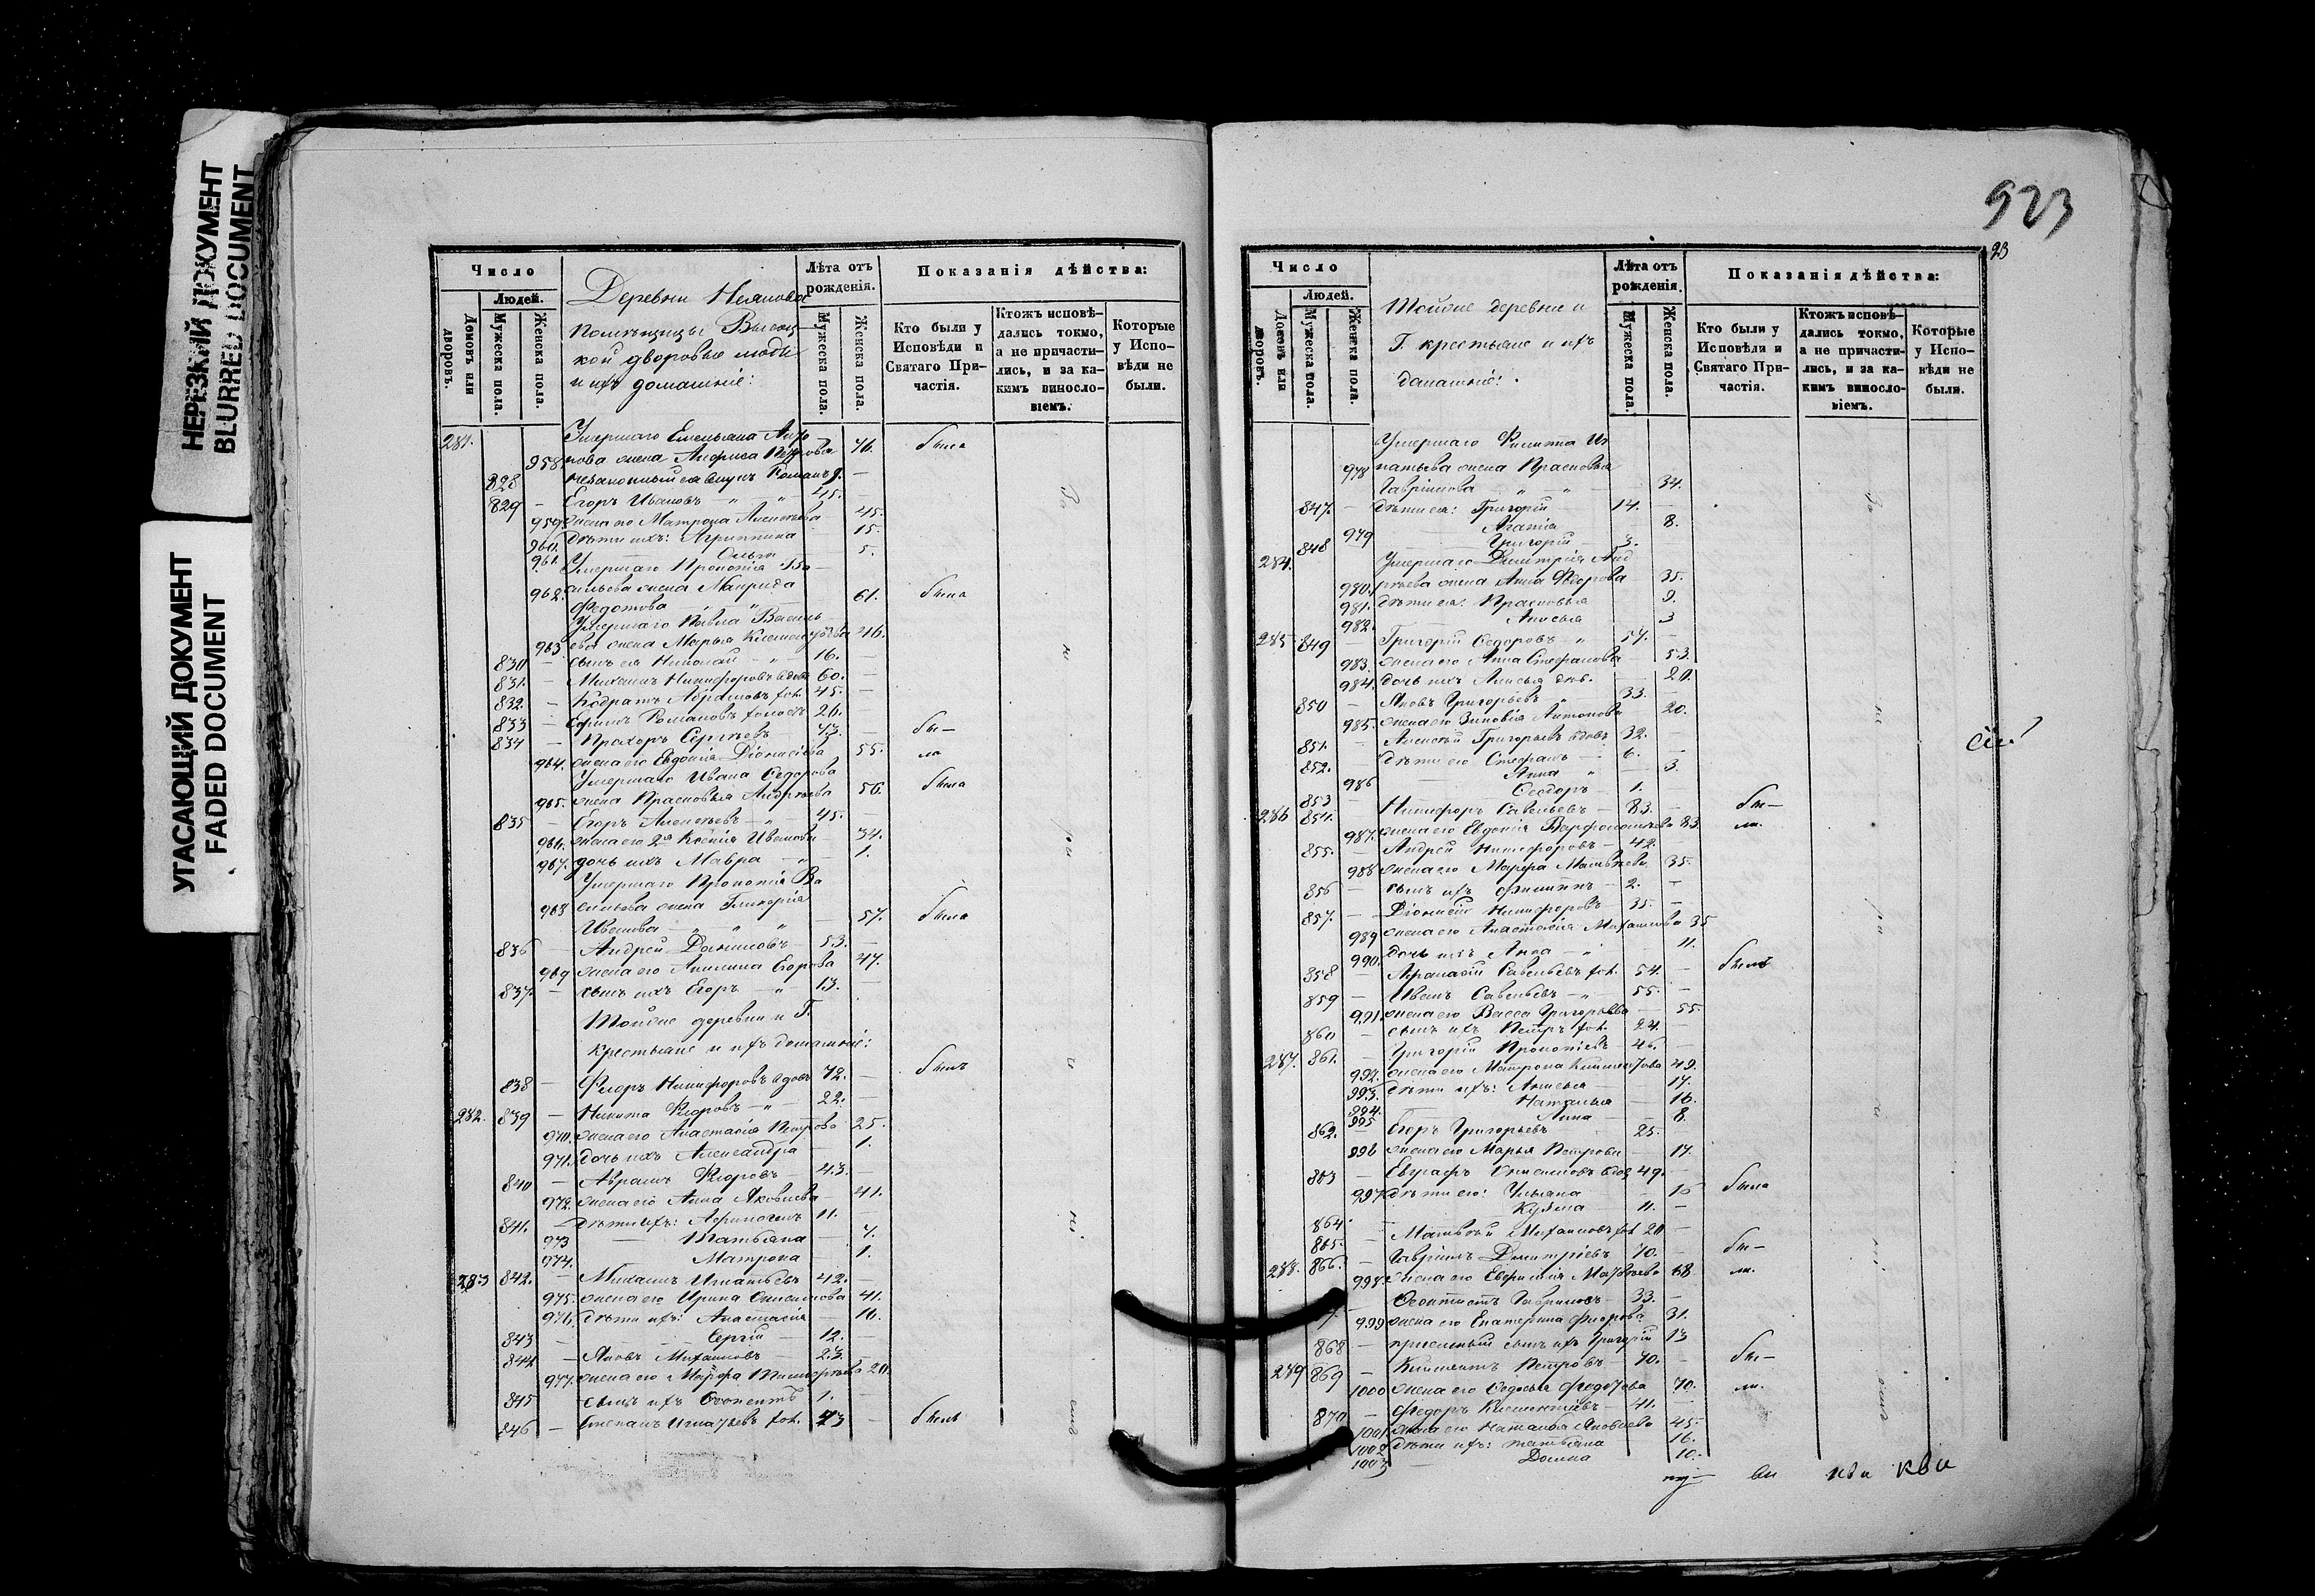 НЕРЕЗКИЙ ДОКУМЕНТ
BLURRED DOCUMENT
УГАСАЮЩИЙ ДОКУМЕНТ
FADED DOCUMENT
Число
Людей.
Домовъ или дворовъ.
Мужеска пола.
Женска пола.
Деревни
помѣщицы
кой дворовые люди
и ихъ домашніе:
Лѣта отъ рожденія.
Мужеска пола.
Женска пола.
Показанія дѣйства:
Кто были у Исповѣди и Святаго Причастія.
Ктожъ исповѣдались токмо, а не причастились, и за какимъ винословіемъ.
Которые у Исповѣди не были.
281. Умершаго Емельяна
958 жена 76. была
828 незаконный ея внукъ Романъ 9.
829 Егоръ Ивановъ 45.
959 жена его Матрона Алексѣева 45.
960. дѣти ихъ: Агриппина 15.
961. 5.
Умершаго Прокопія Ва
962. сильева жена
Федотова 61. была
Умершаго Павла Василь
963 ева жена Марья 46.
830 сынъ ея Николай 16.
831. Михаилъ Никифоровъ вдовъ 60.
832. Кодратъ Абрамовъ хол. 45.
833 Ефимъ Романовъ холостъ 26.
834 Прохоръ Сергѣевъ 73. бы—
964. жена его Евдокія Діонисіева 55. ли
Умершаго Ивана Федорова
965. жена Прасковья Андреева 56. была
835 Егоръ Алексѣевъ 45.
966. жена его 2я Ксенія Иванова 34.
967. дочь ихъ Мавра 1.
Умершаго Прокопія Ва
968 сильева жена Гликерія
Иванова 57. была
836 Андрей Даниловъ 53.
969 жена его Акилина Егорова 47.
837. сынъ ихъ Егоръ 13.
Тойже деревни и Г.
крестьяне и ихъ домашніе:
838 Ѳедоръ Никифоровъ вдовъ 72. былъ
282. 839 Никита Ѳедоровъ 22.
970. жена его Анастасія Петрова 25.
971. дочь ихъ Александра 1.
840 Абрамъ Ѳедоровъ 43.
972. жена его Анна Яковлева 41.
841. дѣти ихъ: 11.
973 Татьяна 7.
974. Матрона 1.
283 842. Михаилъ Игнатьевъ 42.
975. жена его Ирина Онисимова 41.
976. дѣти ихъ: Анастасія 16.
843 Сергій 12.
844 Яковъ Михаиловъ 23.
977. жена его Марѳа 20.
845 сынъ ихъ 1.
846 Степанъ Игнатьевъ хол. 43 былъ
923
23
Число
Людей.
Домовъ или дворовъ.
Мужеска пола.
Женска пола.
Тойже деревни и
Г. крестьяне и ихъ
домашніе:
Лѣта отъ рожденія.
Мужеска пола.
Женска пола.
Показанія дѣйства:
Кто были у Исповѣди и Святаго Причастія.
Ктожъ исповѣдались токмо, а не причастились, и за какимъ винословіемъ.
Которые у Исповѣди не были.
Умершаго Филиппа Иг
978 натьева жена Прасковья
Гаврилова 34.
847. дѣти ея: Григорій 14.
979 Агапія 8.
848 Григорій 3.
284. Умершаго Димитрія Анд
980. реева жена Анна Ѳедорова 35.
981. дѣти ея: Прасковья 9.
982. Анисья 3
285 849 Григорій Ѳедоровъ 57.
983. жена его Анна Стефанова 53.
984. дочь ихъ Анисья дѣв. 20.
850 Яковъ Григорьевъ 33.
985. жена его Зиновія Антонова 20.
851. Алексѣй Григорьевъ вдовъ 32.
852. дѣти его Стефанъ 6.
986 Анна 3.
853 Ѳеодоръ 1.
286 854. Никифоръ Савельевъ 83. бы—
987. жена его Евдокія Варфоломѣева 83. ли.
855. Андрей Никифоровъ 42.
988 жена его Марфа Матвѣева 35.
856 сынъ ихъ Филиппъ 2.
857. Діонисій Никифоровъ 35.
989 жена его Анастасія Михаилова 35
990. дочь ихъ 11.
858 Афанасій Савельевъ хол. 54. былъ
859 Иванъ Савельевъ 55.
991. жена его Васса Григорьева 55.
860 сынъ ихъ Петръ хол. 24.
287. 861. Григорій Прокопіевъ 46.
992. жена его Матрона 49.
993. дѣти ихъ: Анисья 17.
994. Наталья 16.
995 Анна 8.
862. Егоръ Григорьевъ 25.
996 жена его Марья Петрова 17.
863 Евграфъ Онисимовъ вдов 49.
997 дѣти его: Ульяна 16 была
864. Кузма 11.
865. Матвѣй Михаиловъ хол 20
288. 866. Гавріилъ Димитріевъ 70. бы—
998. жена его Евфимія Матвѣева 68 ли.
Ѳеоктистъ Гавриловъ 33.
999 жена его Екатерина Ѳедорова 31.
868 пріемный сынъ ихъ Григорій 13
289 869 Климентъ Петровъ 70. бы—
1000 жена его Ѳедосья Федотова 70. ли.
870 Федоръ Климентіевъ 41.
1001 жена его Наталья Яковлева 45.
1002 дѣти ихъ: Татьяна 16.
1003 Домна 10.